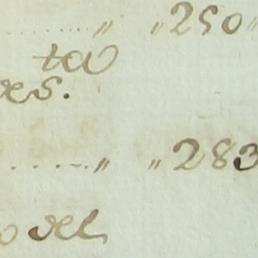 ........ „ „ 250 „
ta
es.
........ „ „ 283
o del